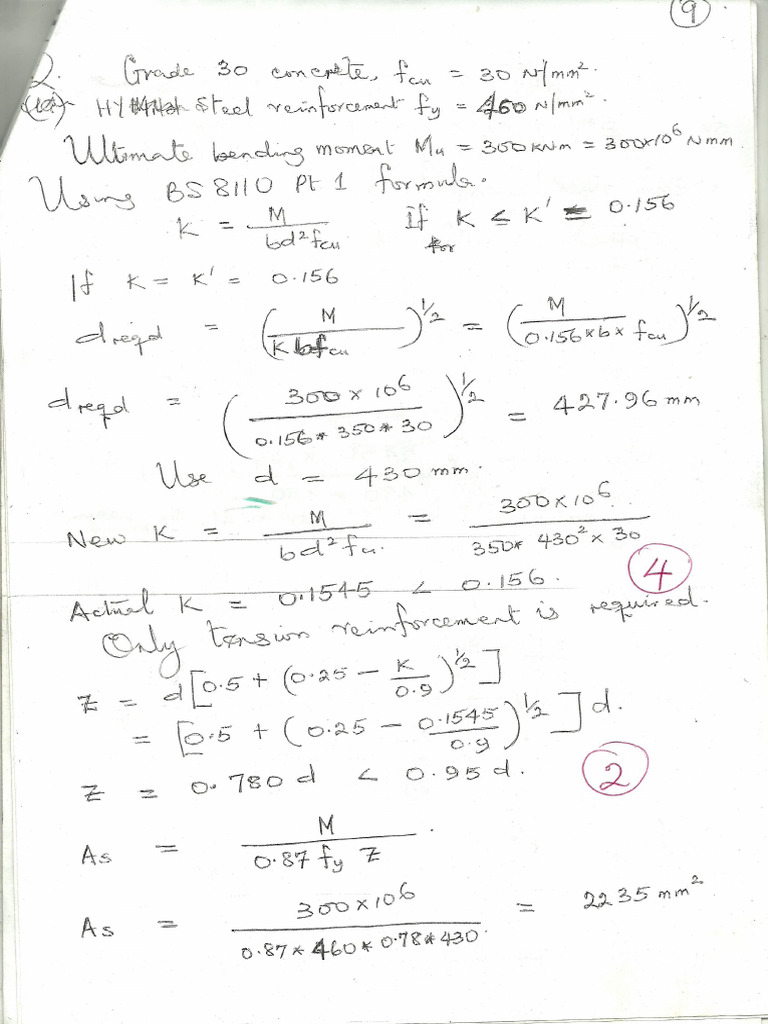 9
2. Grade 30 concrete, fcu = 30 N/mm².
HY Steel reinforcement fy = 460 N/mm².
Ultimate bending moment Mu = 300 kNm = 300x10⁶ Nmm.
Using BS 8110 Pt 1 formula.
K = M / bd²fcu If K ≤ K' = 0.156
for
If K = K' = 0.156
dreqd = (M / K b fcu)^1/2 = (M / 0.156 x b x fcu)^1/2
dreqd = (300 x 10⁶ / 0.156 * 350 * 30)^1/2 = 427.96 mm
Use d = 430 mm.
New K = M / bd²fcu. = 300x10⁶ / 350* 430² x 30
Actual K = 0.1545 < 0.156. 4
Only tension reinforcement is required.
Z = d[0.5 + (0.25 - K/0.9)^1/2]
= [0.5 + (0.25 - 0.1545/0.9)^1/2] d.
Z = 0.780 d < 0.95 d. 2
As = M / 0.87 fy Z .
As = 300x10⁶ / 0.87 * 460 * 0.78 * 430. = 2235 mm²